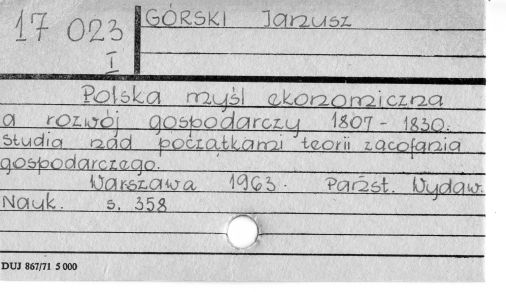 17 023
I
GÓRSKI Janusz
Polska myśl ekonomiczna
a rozwój gospodarczy 1807 - 1830.
Studia nad początkami teorii zacofania
gospodarczego.
Warszawa 1963. Państ. Wydaw.
Nauk. s. 358
DUJ 867/71 5 000